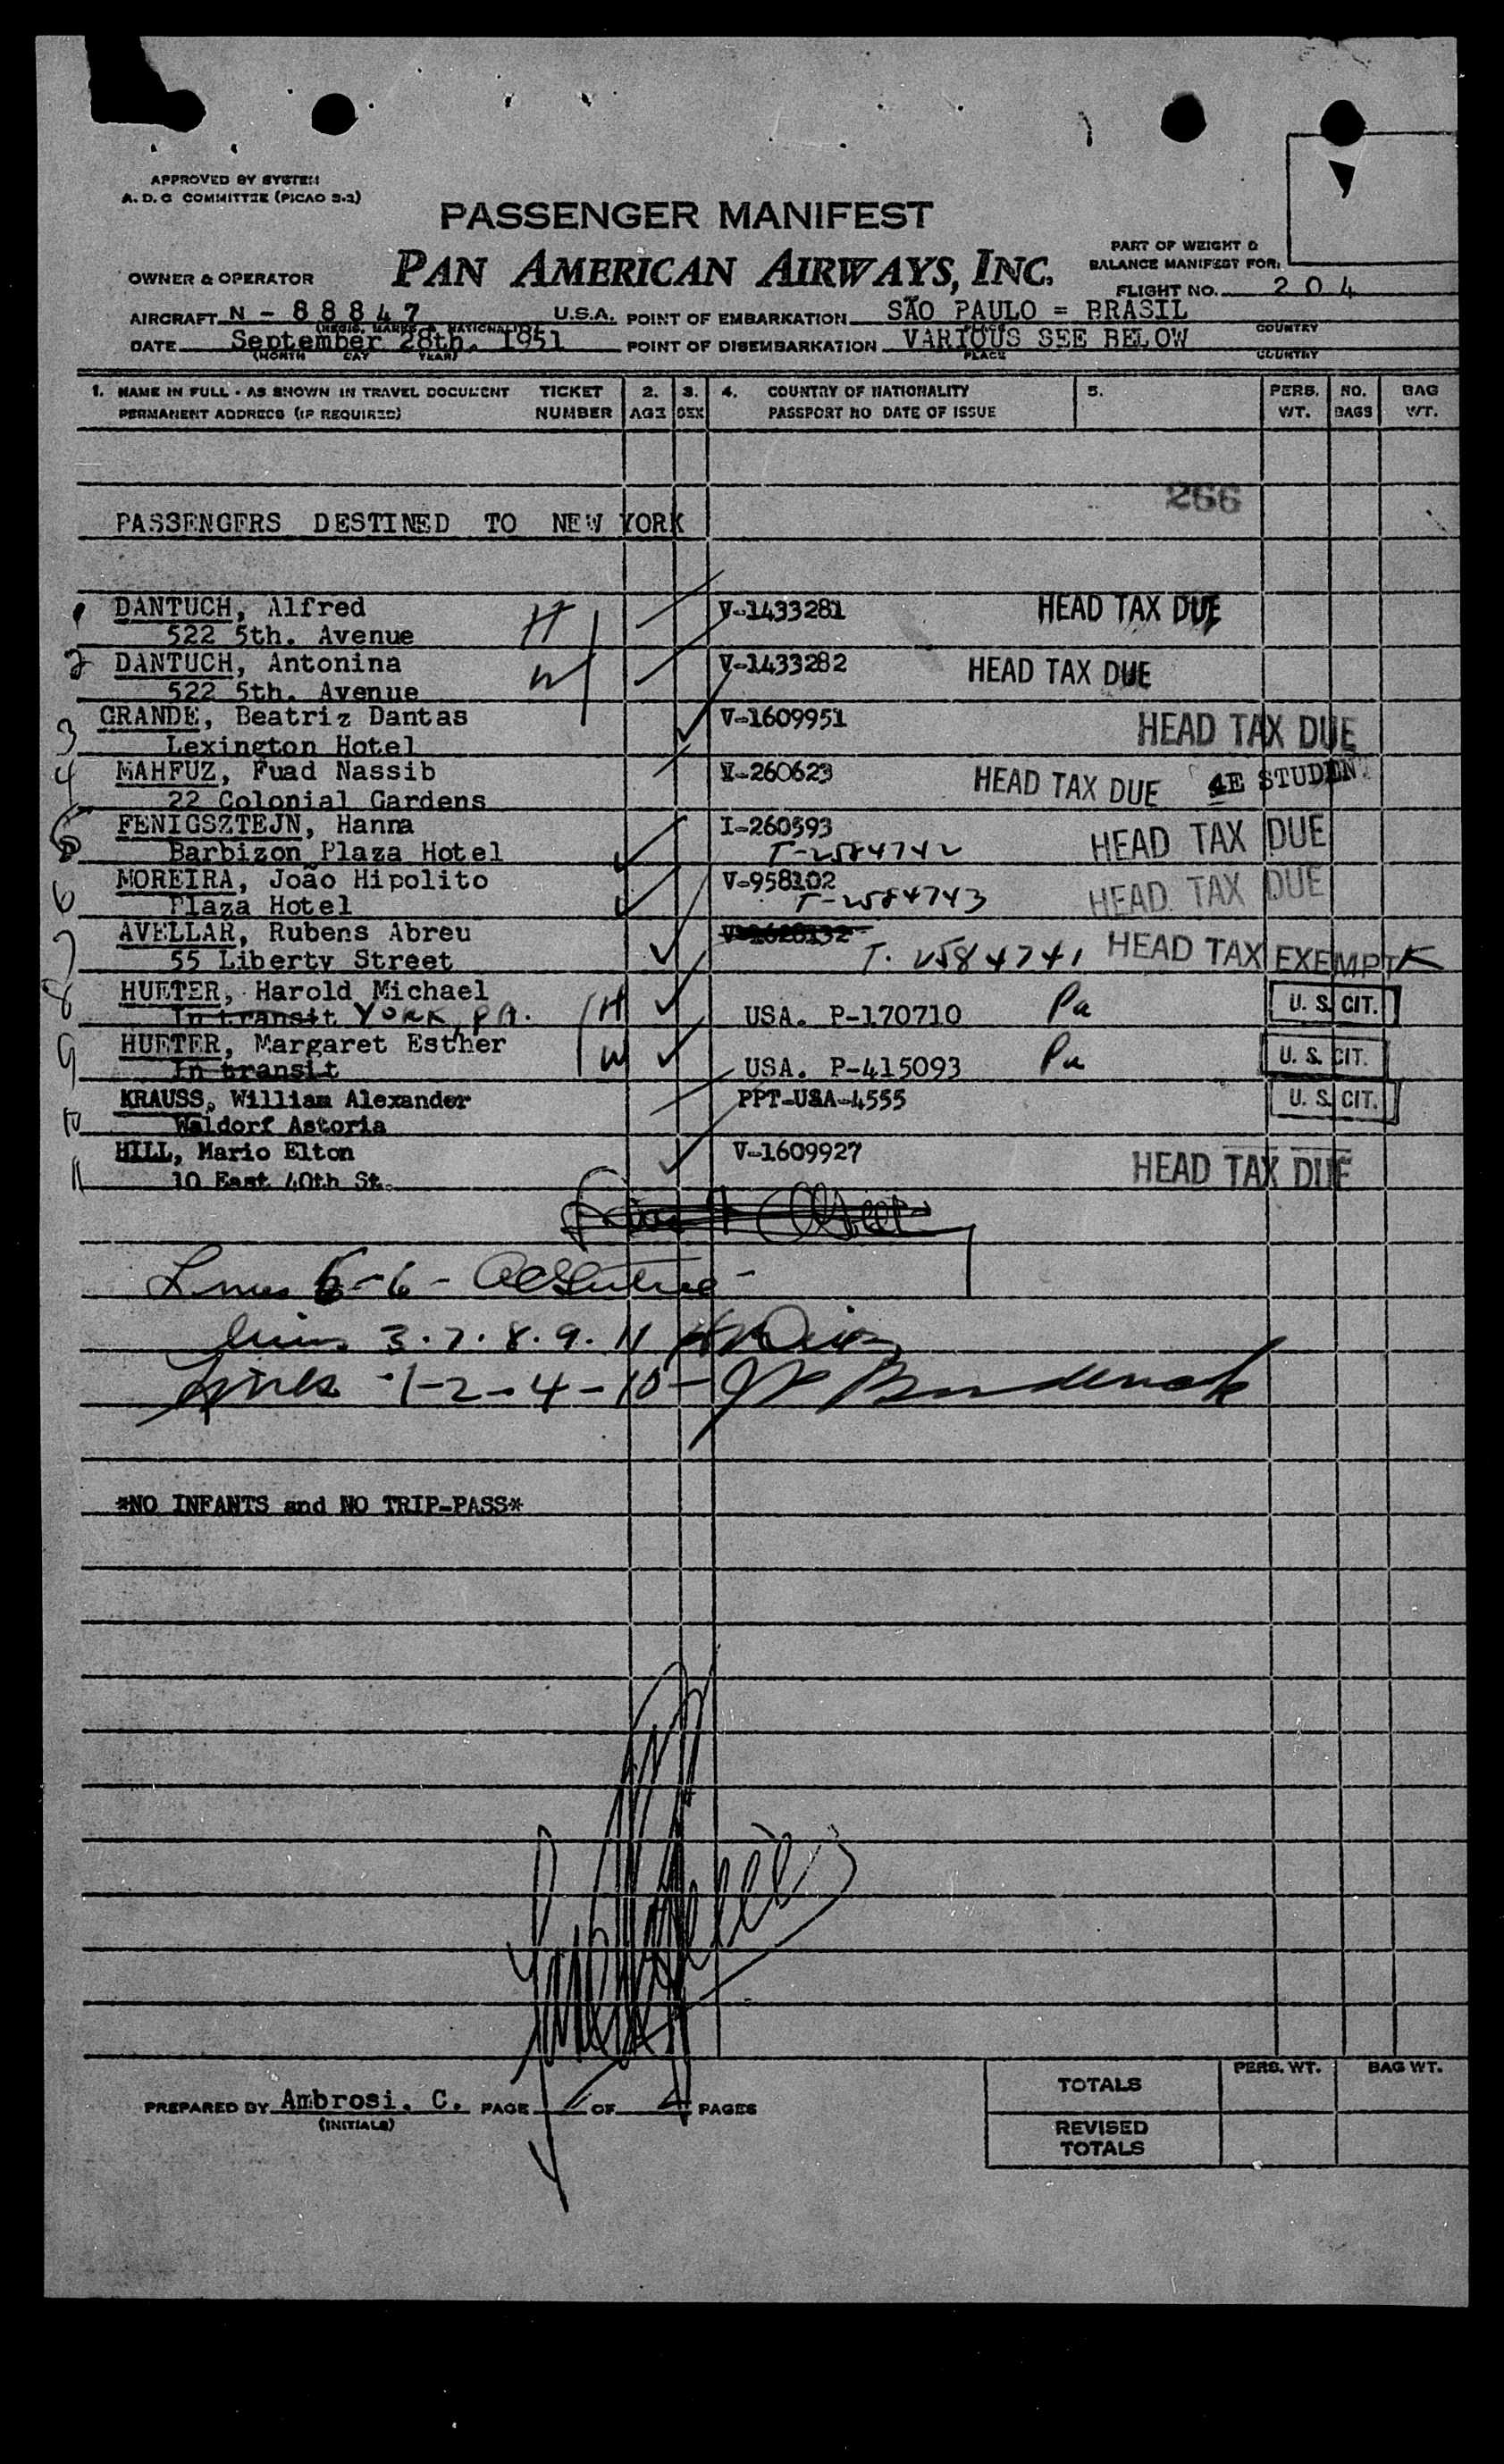 APPROVED BY SYSTEM
A. D. C COMMITTEE (PICAO 9-2)
PASSENGER MANIFEST
PAN AMERICAN AIRWAYS, INC.
OWNER & OPERATOR
PART OF WEIGHT &
BALANCE MANIFEST FOR:
FLIGHT NO. 204
AIRCRAFT N - 88847 U.S.A. POINT OF EMBARKATION SÃO PAULO = BRASIL
(REGIS. MARKS & NATIONALITY) COUNTRY
DATE September 28th. 1951 POINT OF DISEMBARKATION VARIOUS SEE BELOW
(MONTH DAY YEAR) PLACE COUNTRY
1. NAME IN FULL - AS SHOWN IN TRAVEL DOCUMENT TICKET 2. 3. 4. COUNTRY OF NATIONALITY 5. PERS. NO. BAG
PERMANENT ADDRESS (IF REQUIRED) NUMBER AGE SEX PASSPORT NO DATE OF ISSUE WT. BAGS WT.
266
PASSENGERS DESTINED TO NEW YORK
1 DANTUCH, Alfred H V-1433281 HEAD TAX DUE
522 5th. Avenue
2 DANTUCH, Antonina W V-1433282 HEAD TAX DUE
522 5th. Avenue
3 GRANDE, Beatriz Dantas V-1609951 HEAD TAX DUE
Lexington Hotel
4 MAHFUZ, Fuad Nassib V-260623 HEAD TAX DUE 4E STUDENT
22 Colonial Gardens
5 FENIGSZTEJN, Hanna I-260593 HEAD TAX DUE
Barbizon Plaza Hotel T-2584742
6 MOREIRA, João Hipolito V-958102 HEAD TAX DUE
Plaza Hotel T-2584743
7 AVELLAR, Rubens Abreu V-1628132 HEAD TAX EXEMPT
55 Liberty Street T. 2584741
8 HUETER, Harold Michael H U. S. CIT.
In transit YORK, PA. USA. P-170710 Pa
9 HUETER, Margaret Esther W U. S. CIT.
In transit USA. P-415093 Pa
10 KRAUSS, William Alexander PPT-USA-4555 U. S. CIT.
Waldorf Astoria
11 HILL, Mario Elton V-1609927 HEAD TAX DUE
10 East 40th St.
Lines 5-6-
Lines 3.7.8.9.11
Lines 1-2-4-10-
*NO INFANTS and NO TRIP-PASS*
PREPARED BY Ambrosi. C. PAGE 1 OF 4 PAGES
(INITIALS)
PERS. WT. BAG WT.
TOTALS
REVISED
TOTALS